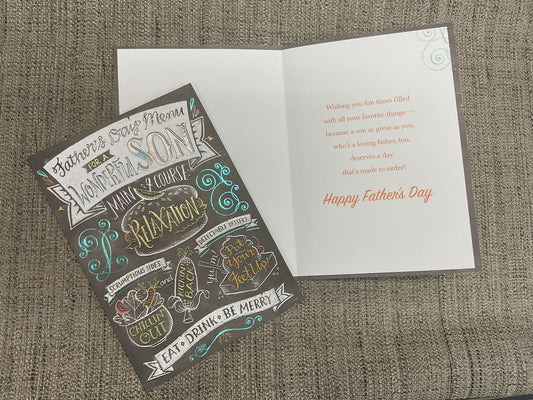 Father's Day Menu
FOR A
WONDERFUL SON
MAIN COURSE
RELAXATION
SCRUMPTIOUS SIDES
DELECTABLE DESSERT
CHILLIN' OUT
and
BACK
Put Your Feet Up
EAT • DRINK • BE MERRY
Wishing you fun times filled
with all your favorite things—
because a son as great as you,
who's a loving father, too,
deserves a day
that's made to order!
Happy Father's Day